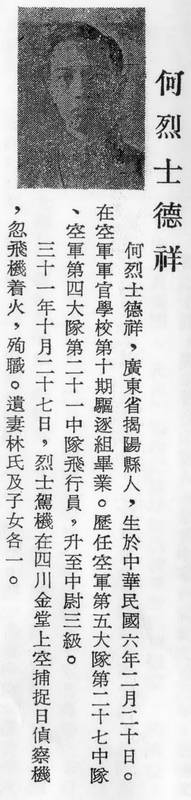 何烈士德祥
何烈士德祥，廣東省揭陽縣人，生於中華民國六年二月二十日。
在空軍軍官學校第十期驅逐組畢業。歷任空軍第五大隊第二十七中隊
、空軍第四大隊第二十一中隊飛行員，升至中尉三級。
三十一年十月二十七日，烈士駕機在四川金堂上空捕捉日偵察機
，忽飛機着火，殉職。遺妻林氏及子女各一。